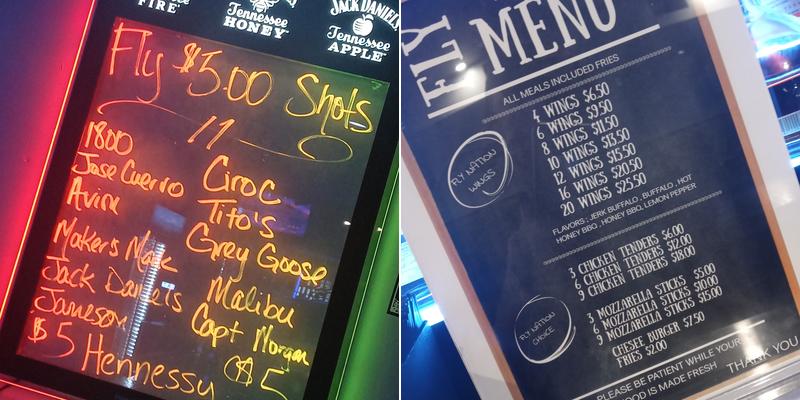 FIRE
Tennessee
HONEY
JACK DANIEL'S
Tennessee
APPLE
Fly $5.00 Shots
11
1800
Jose Cuervo
Avion
Makers Mark
Jack Daniels
Jameson
$5 Hennessy
Ciroc
Tito's
Grey Goose
Malibu
Capt Morgan
$5
FLY
MENU
ALL MEALS INCLUDED FRIES
FLY NATION
WINGS
4 WINGS $6.50
6 WINGS $9.50
8 WINGS $11.50
10 WINGS $13.50
12 WINGS $15.50
16 WINGS $20.50
20 WINGS $25.50
FLAVORS : JERK BUFFALO , BUFFALO , HOT
HONEY BBQ , HONEY BBQ, LEMON PEPPER
FLY NATION
CHOICE
3 CHICKEN TENDERS $6.00
6 CHICKEN TENDERS $12.00
9 CHICKEN TENDERS $18.00
3 MOZZARELLA STICKS $5.00
6 MOZZARELLA STICKS $10.00
9 MOZZARELLA STICKS $15.00
CHEESE BURGER $7.50
FRIES $2.00
PLEASE BE PATIENT WHILE YOUR
FOOD IS MADE FRESH
THANK YOU